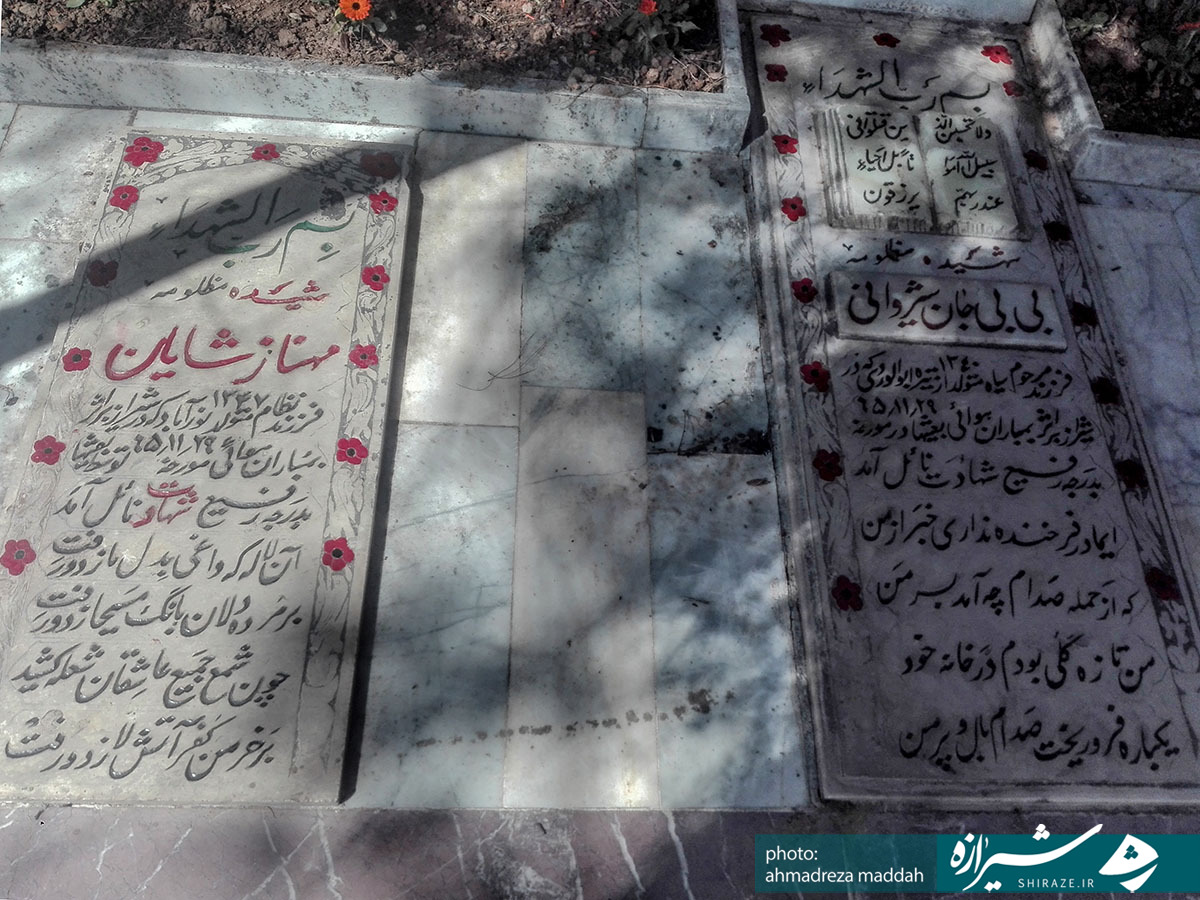 بسم رب الشهداء
ولا تحسبن الله
ین قتلوا فی
سبیل الله امو
تا بل احیاء
عند ربهم
یرزقون
شهیده مظلومه
بی بی جان شیروانی
فرزند مرحوم سیاه متولد ۱۳۴۰ از تیره ابوالوردی که در
شیراز بر اثر بمباران هوائی بعثیها در مورخه ۶۵/۱۱/۲۹
بدرجه رفیع شهادت نائل آمد
ایمادر فرخنده نداری خبر از من
که از حمله صدام چه آمد بسر من
من تازه گلی بودم در خانه خود
یکباره فرو ریخت صدام بال و پر من
بسم رب الشهداء
شهیده مظلومه
مهناز شاین
فرزند نظام متولد ۱۳۴۷ نورآباد که در شیراز بر اثر
بمباران هوائی مورخه ۶۵/۱۱/۲۹ توسط بعثیها
بدرجه رفیع شهادت نائل آمد
آن لاله که داغی بدل ما زد و رفت
بر مرده دلان بانگ مسیحا زد و رفت
چون شمع جمیع عاشقان شعله کشید
بر خرمن کفر آتش لا زد و رفت
photo:
ahmadreza maddah
شیرازه
SHIRAZE.IR